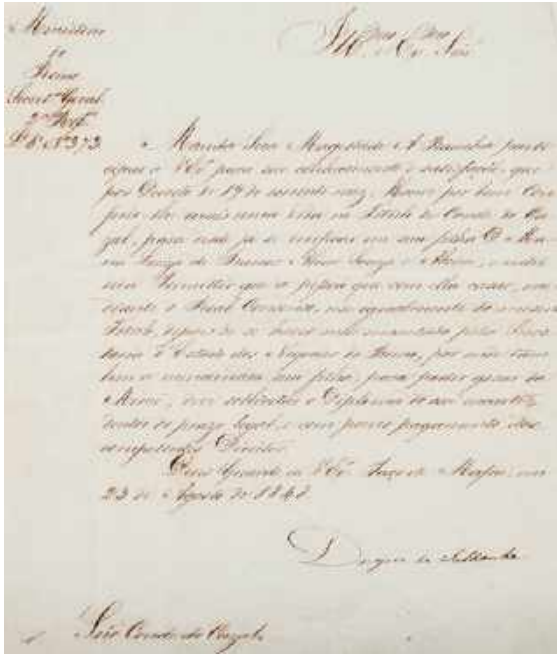 Ministerio
do
Reino
Secret.ª Geral
2.ª Rep.
L.º 8 N.º 373
Ill.mo e Ex.mo Snr.
Manda Sua Magestade A Rainha parti-
cipar a V. Ex.ª para seu conhecimento e satisfação, que
por Decreto de 19 do corrente mez, Houve por bem Con-
mais uma Vida no Titulo de Conde do Ca-
zal, para esta já se verificar em sua filha D. Ma-
ria
Permittir que a pessoa que com ella casar, me-
diante o Real Consenso, use egualmente do mesmo
Titulo, depois de se haver pela Secre-
taria d'Estado dos Negocios do Reino, por onde tam-
bem sua filha, para poder gosar da
Mercê, deve sollicitar o Diploma
dentro do prazo legal, e com previo pagamento dos
competentes Direitos.
Deus Guarde a V. Ex.ª Paço de Mafra, em
23 de Agosto de 1848
Duque de Saldanha
Snr. Conde do Cazal